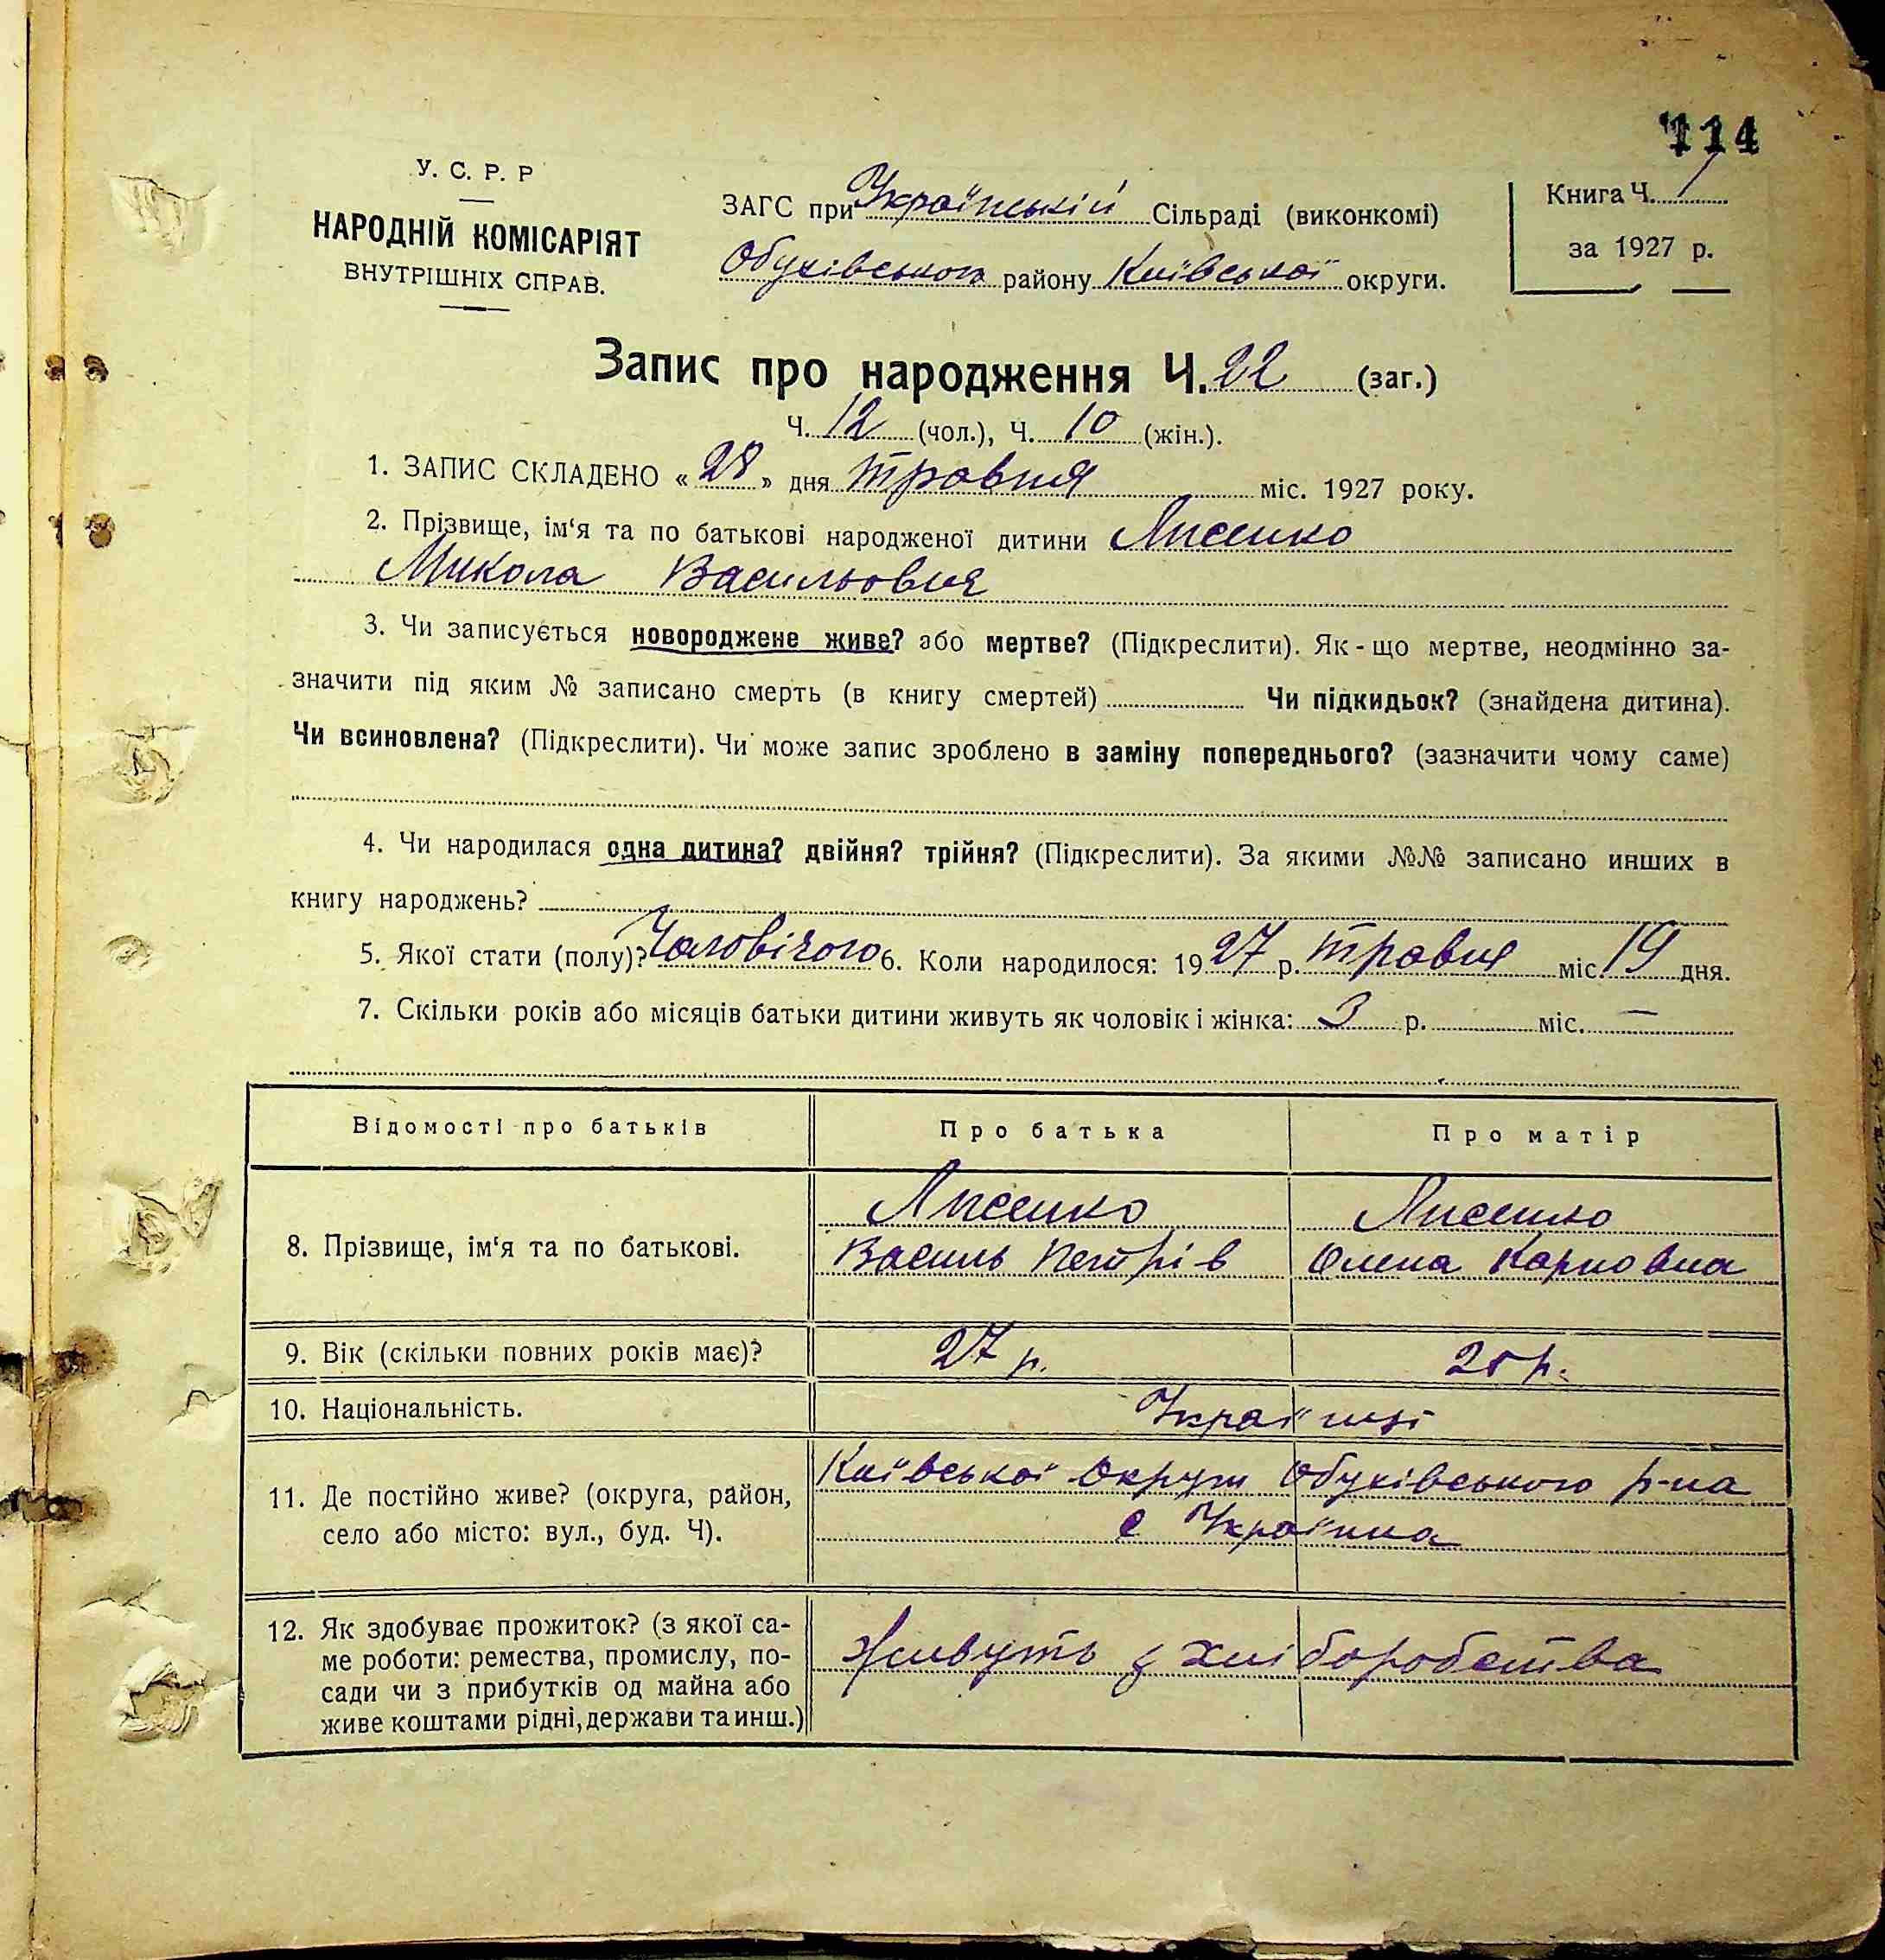 114
У. С. Р. Р
НАРОДНІЙ КОМІСАРІЯТ
ВНУТРІШНІХ СПРАВ.
ЗАГС при Українській Сільраді (виконкомі)
Обухівського району Київської округи.
Книга Ч. 1
за 1927 р.
Запис про народження Ч. 22 (заг.)
Ч. 12 (чол.), Ч. 10 (жін.).
1. ЗАПИС СКЛАДЕНО « 28 » дня травня міс. 1927 року.
2. Прізвище, ім‘я та по батькові народженої дитини Лисенко
Микола Васильович
3. Чи записується новороджене живе? або мертве? (Підкреслити). Як-що мертве, неодмінно за-
значити під яким № записано смерть (в книгу смертей) Чи підкидьок? (знайдена дитина).
Чи всиновлена? (Підкреслити). Чи може запис зроблено в заміну попереднього? (зазначити чому саме)
4. Чи народилася одна дитина? двійня? трійня? (Підкреслити). За якими №№ записано инших в
книгу народжень?
5. Якої стати (полу)? Чоловічого 6. Коли народилося: 1927 р. травня міс. 19 дня.
7. Скільки років або місяців батьки дитини живуть як чоловік і жінка: 3 р. міс. —
Відомості про батьків Про батька Про матір
8. Прізвище, ім‘я та по батькові.
Лисенко Лисенко
Василь Петрів Олена Карповна
9. Вік (скільки повних років має)? 27 р. 25 р.
10. Національність. Українці
11. Де постійно живе? (округа, район,
село або місто: вул., буд. Ч).
Київської округи Обухівського р-на
с Українка
12. Як здобуває прожиток? (з якої са-
ме роботи: ремества, промислу, по-
сади чи з прибутків од майна або
живе коштами рідні, держави та инш.)
Живуть з хліборобства